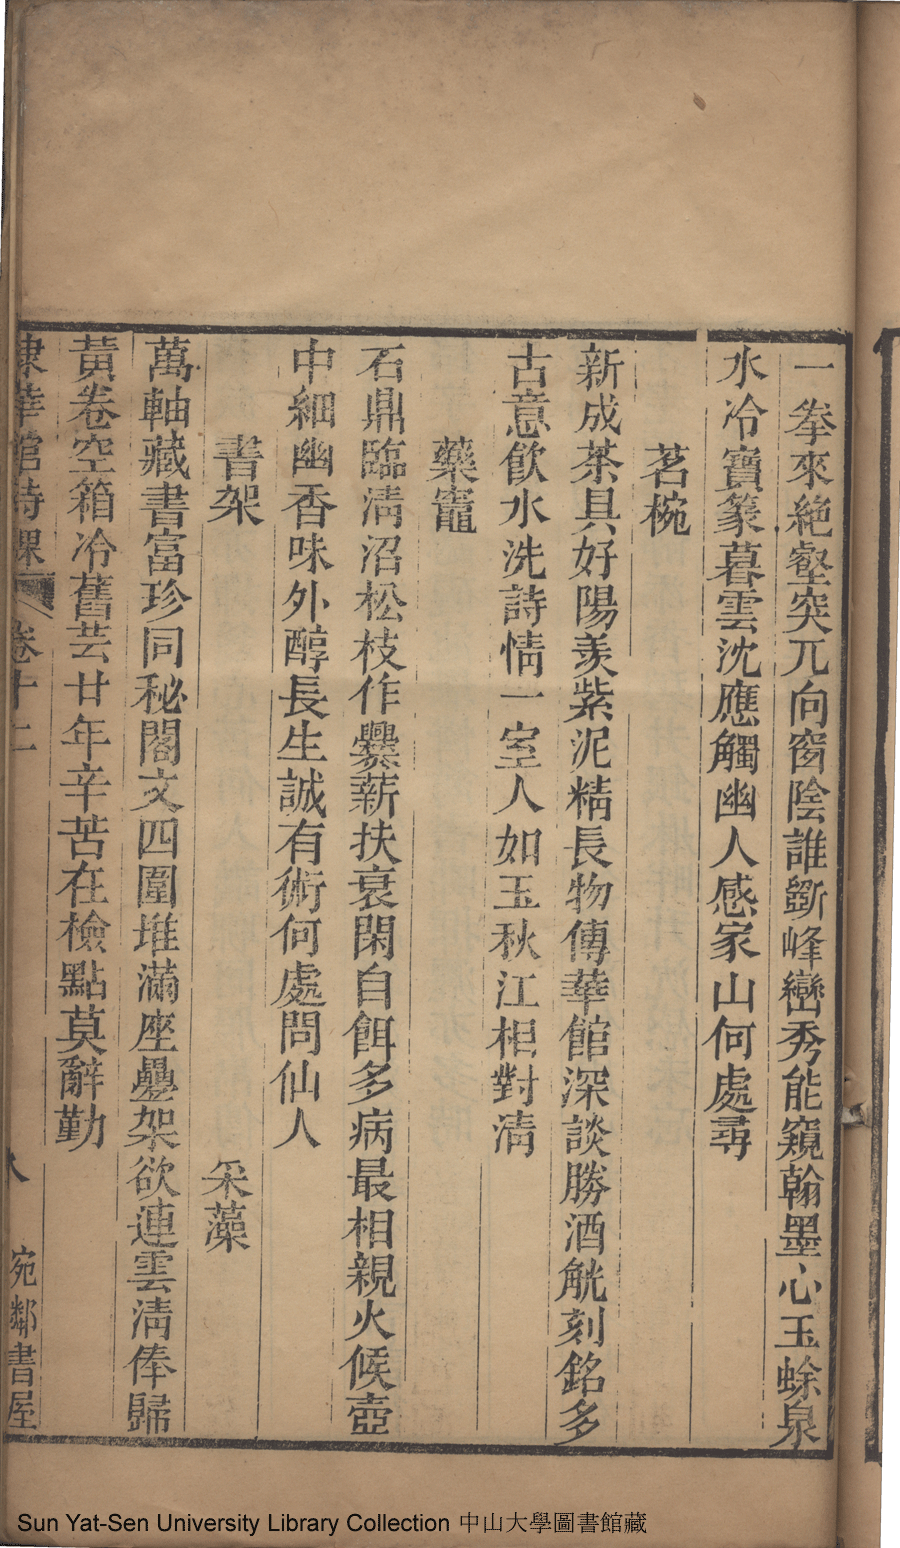 一拳來絶壑突兀向窗陰誰斲峰巒秀能窺翰墨心玉蜍泉
水冷寶篆暮雲沈應觸幽人感家山何處尋
茗椀
新成茶具好陽羨紫泥精長物傳華館深談勝酒觥刻銘多
古意飲水洗詩情一室人如玉秋江相對清
藥竈
石鼎臨清沼松枝作爨薪扶衰閑自餌多病最相親火候壺
中細幽香味外醇長生誠有術何處問仙人
書架 采藻
萬軸藏書富珍同秘閣文四圍堆滿座疊架欲連雲清俸歸
黃卷空箱冷舊芸廿年辛苦在檢點莫辭勤
棣華館詩課 卷十二 八 宛鄰書屋
Sun Yat-Sen University Library Collection 中山大學圖書館藏